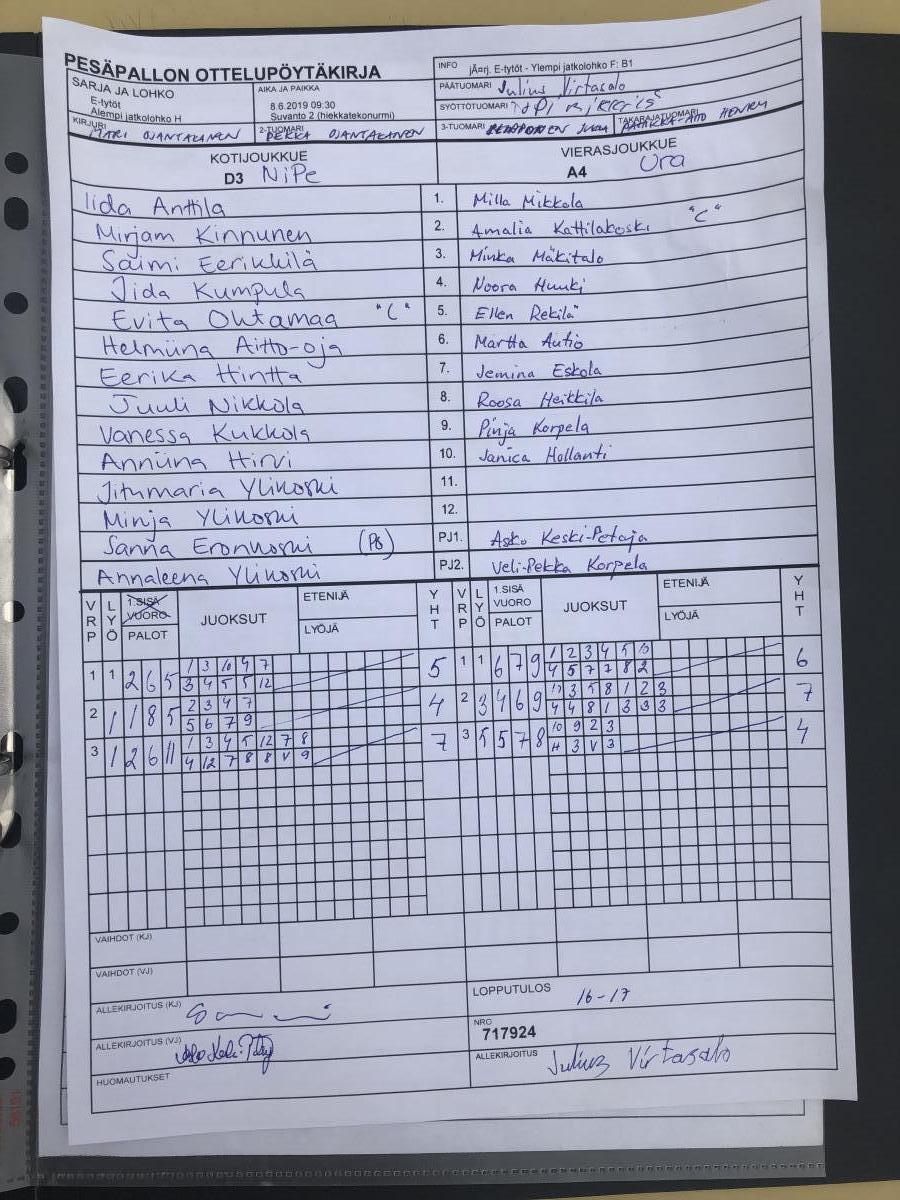 PESÄPALLON OTTELUPÖYTÄKIRJA
INFO jÃ¤rj. E-tytöt - Ylempi jatkolohko F: B1
SARJA JA LOHKO
E-tytöt
Alempi jatkolohko H
AIKA JA PAIKKA
8.6.2019 09:30
Suvanto 2 (hiekkatekonurmi)
PÄÄTUOMARI Julius Virtasalo
SYÖTTÖTUOMARI
KIRJURI MARI OJANTAKANEN
2-TUOMARI PEKKA OJANTAKANEN
3-TUOMARI
TAKARAJATUOMARI HENRY
KOTIJOUKKUE
D3 NiPe
VIERASJOUKKUE
A4 Ura
Iida Anttila 1. Milla Mikkola
Mirjam Kinnunen 2. Amalia Kattilakoski "C"
Saimi Eerikkilä 3. Minka Mäkitalo
Iida Kumpula 4. Noora Huuki
Evita Ohtamaa "C" 5. Ellen Rekilä
Helmiina Aitto-oja 6. Martta Autio
Eerika Hintta 7. Jemina Eskola
Juuli Nikkola 8. Roosa Heikkilä
Vanessa Kukkola 9. Pinja Korpela
Anniina Hirvi 10. Janica Hollanti
Jitumaria Ylikoski 11.
Minja Ylikoski 12.
Sanna Eronkoski PJ1. Asko Keski-Petäjä
Annaleena Ylikoski PJ2. Veli-Pekka Korpela
VRP LYÖ 1.SISÄ VUORO PALOT JUOKSUT ETENIJÄ LYÖJÄ YHT VRP LYÖ 1.SISÄ VUORO PALOT JUOKSUT ETENIJÄ LYÖJÄ YHT
1 1 2 6 5 1 3 10 4 7 5 1 1 6 7 9 1 2 3 4 5 10 6
3 4 5 5 12 4 5 7 7 8 2
2 1 1 8 5 2 3 4 7 4 2 3 4 6 9 3 5 8 1 2 3 7
5 6 7 9 4 4 8 1 3 3 3
3 1 2 6 11 1 3 4 5 12 7 8 7 3 5 5 7 8 10 9 2 3 4
4 12 7 8 8 V 9 3 V 3
VAIHDOT (KJ)
VAIHDOT (VJ)
ALLEKIRJOITUS (KJ)
LOPPUTULOS 16-17
ALLEKIRJOITUS (VJ)
NRO
717924
HUOMAUTUKSET
ALLEKIRJOITUS Julius Virtasalo